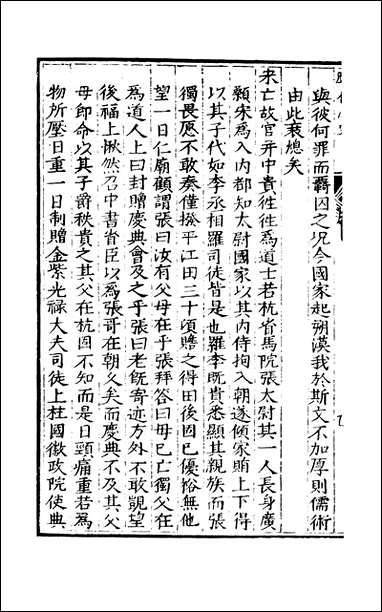 與彼何罪而羇囚之况今國家起朔漠我於斯文不加厚則儒術
由此衰熄矣
宋亡故官并中貴徃徃為道士若杭省馬院張太尉其一人長身廣
顙宋為入内都知太尉國家以其内侍拘入朝遂傾家賄上下得
以其子代如李丞相羅司徒皆是也羅李旣貴悉顯其親族而張
獨畏愿不敢奏僅撥平江田三十項贍之得田後因已優裕無他
望一日仁廟顧謂張曰汝有父母在乎張拜答曰毋已亡獨父在
為道人上曰封贈慶典會及之乎張曰老旣寄迹方外不敢覬望
後福上愀然召中書省臣以為張哥在朝乆矣而慶典不及其父
母即命以其子爵秩貴之其父在杭固不知而是日頸痛重若為
物所壓日重一日制贈金紫光禄大夫司徒上柱國徽政院使典